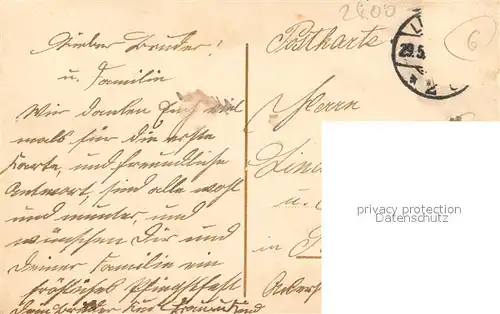 2400
Lieber Bruder!
u. Familie
Wir danken Euch viel
mals für die erste
Karte, und freundliche
Antwort, sind alle wohl
und munter, und
wünschen Dir und
Deiner Familie ein
fröhliches Pfingstfest
Dein Bruder Frau u Kind
Postkarte
29.5.
* 2
6
Herrn
u.
in
privacy protection
Datenschutz